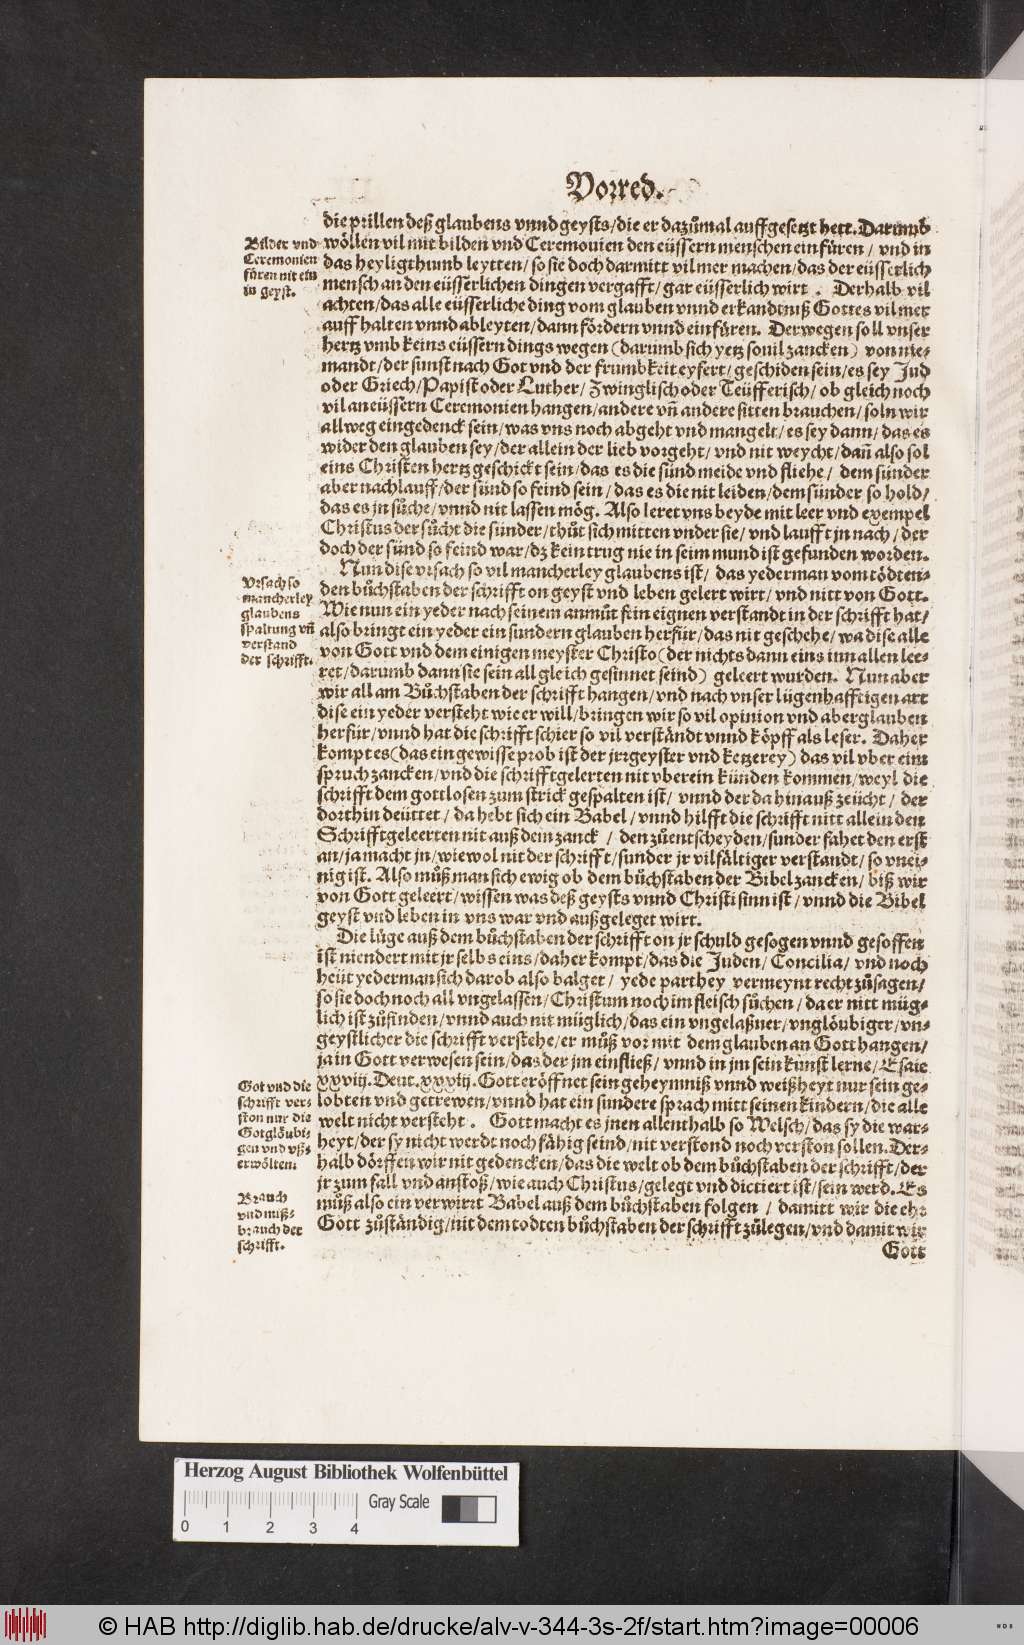 Vorred.
die prillen deß glaubens vnnd geysts/die er dazůmal auffgesetzt hett. Darumb
wöllen vil mit bilden vnd Ceremonien den eüssern menschen einfüren/ vnd in
das heyligthumb leytten/ so sie doch darmitt vil mer machen/das der eüsserlich
mensch an den eüsserlichen dingen vergafft/ gar eüsserlich wirt. Derhalb vil
achten/das alle eüsserliche ding vom glauben vnnd erkandtnuß Gottes vil mer
auff halten vnnd ableyten/dann fördern vnnd einfüren. Derwegen soll vnser
hertz vmb keins eüssern dings wegen (darumb sich yetz souil zancken) von nie-
mandt/der sunst nach Got vnd der frumbkeit eyfert/ geschiden sein/es sey Jud
oder Griech/Papist oder Luther/ Zwinglisch oder Teüfferisch/ ob gleich noch
vil an eüssern Ceremonien hangen/andere vñ andere sitten brauchen/ soln wir
allweg eingedenck sein/was vns noch abgeht vnd mangelt/es sey dann/das es
wider den glauben sey/der allein der lieb vorgeht/ vnd nit weycht/dañ also sol
eins Christen hertz geschickt sein/das es die sünd meide vnd fliehe/ dem sünder
aber nachlauff/der sünd so feind sein/das es die nit leiden/dem sünder so hold/
das es jn sůche/vnnd nit lassen mög. Also leret vns beyde mit leer vnd exempel
Christus der sůcht die sünder/thůt sich mitten vnder sie/ vnd laufft jn nach/der
doch der sünd so feind war/dz kein trug nie in seim mund ist gefunden worden.
Nun dise vrsach so vil mancherley glaubens ist/ das yederman vom tödten-
den bůchstaben der schrifft on geyst vnd leben gelert wirt/vnd nitt von Gott.
Wie nun ein yeder nach seinem anmůt sein eignen verstandt in der schrifft hat/
also bringt ein yeder ein sundern glauben herfür/das nit geschehe/wa dise alle
von Gott vnd dem einigen meyster Christo (der nichts dann eins inn allen lee-
ret/darumb dann sie sein all gleich gesinnet seind) geleert wurden. Nun aber
wir all am Bůchstaben der schrifft hangen/vnd nach vnser lügenhafftigen art
dise ein yeder versteht wie er will/bringen wir so vil opinion vnd aberglauben
herfür/vnnd hat die schrifft schier so vil verständt vnnd köpff als leser. Daher
kompt es (das ein gewisse prob ist der jrrgeyster vnd ketzerey) das vil vber eim
spruch zancken/vnd die schrifftgelerten nit vberein künden kommen/weyl die
schrifft dem gottlosen zum strick gespalten ist/ vnnd der da hinauß zeücht/ der
dorthin deüttet/ da hebt sich ein Babel/vnnd hilfft die schrifft nitt allein den
Schrifftgeleerten nit auß dem zanck/ den zůentscheyden/sunder fahet den erst
an/ja macht jn/wiewol nit der schrifft/sunder jr vilfältiger verstandt/ so vnei-
nig ist. Also můß man sich ewig ob dem bůchstaben der Bibel zancken/ biß wir
von Gott geleert/wissen was deß geysts vnnd Christi sinn ist/ vnnd die Bibel
geyst vnd leben in vns war vnd außgeleget wirt.
Die lüge auß dem bůchstaben der schrifft on jr schuld gesogen vnnd gesoffen
ist niendert mit jr selbs eins/daher kompt/das die Juden/ Concilia/ vnd noch
heüt yederman sich darob also balget/ yede parthey vermeynt recht zůsagen/
so sie doch noch all vngelassen/Christum noch im fleisch sůchen/da er nitt müg-
lich ist zůfinden/vnnd auch nit müglich/das ein vngelaßner/vnglöubiger/vn-
geystlicher die schrifft verstehe/er můß vor mit dem glauben an Gott hangen/
ja in Gott verwesen sein/das der jm einfließ/ vnnd in jm sein kunst lerne/Esaie
xxviij. Deut. xxviij. Gott eröffnet sein geheymniß vnnd weißheyt nur sein ge-
lobten vnd getrewen/vnnd hat ein sundere sprach mitt seinen kindern/die alle
welt nicht versteht. Gott macht es jnen allenthalb so Welsch/das sy die war-
heyt/der sy nicht werdt noch fähig seind/nit verstond noch verston sollen. Der-
halb dörffen wir nit gedencken/das die welt ob dem bůchstaben der schrifft/der
jr zum fall vnd anstoß/wie auch Christus/gelegt vnd dictiert ist/sein werd. Es
můß also ein verwirrt Babel auß dem bůchstaben folgen/ damitt wir die ehr
Gott zůständig/nit dem todten bůchstaben der schrifft zůlegen/vnd damit wir
Gott
Bilder vnd
Ceremonien
füren nit ein
in geyst.
Vrsach so
mancherley
glaubens
spaltung vñ
verstand
der schrifft.
Got vnd die
schrifft ver-
ston nur die
Gotglöubi-
gen vnd vß-
erwölten.
Brauch
vnd miß-
brauch der
schrifft.
Herzog August Bibliothek Wolfenbüttel
Gray Scale
0 1 2 3 4
© HAB http://diglib.hab.de/drucke/alv-v-344-3s-2f/start.htm?image=00006